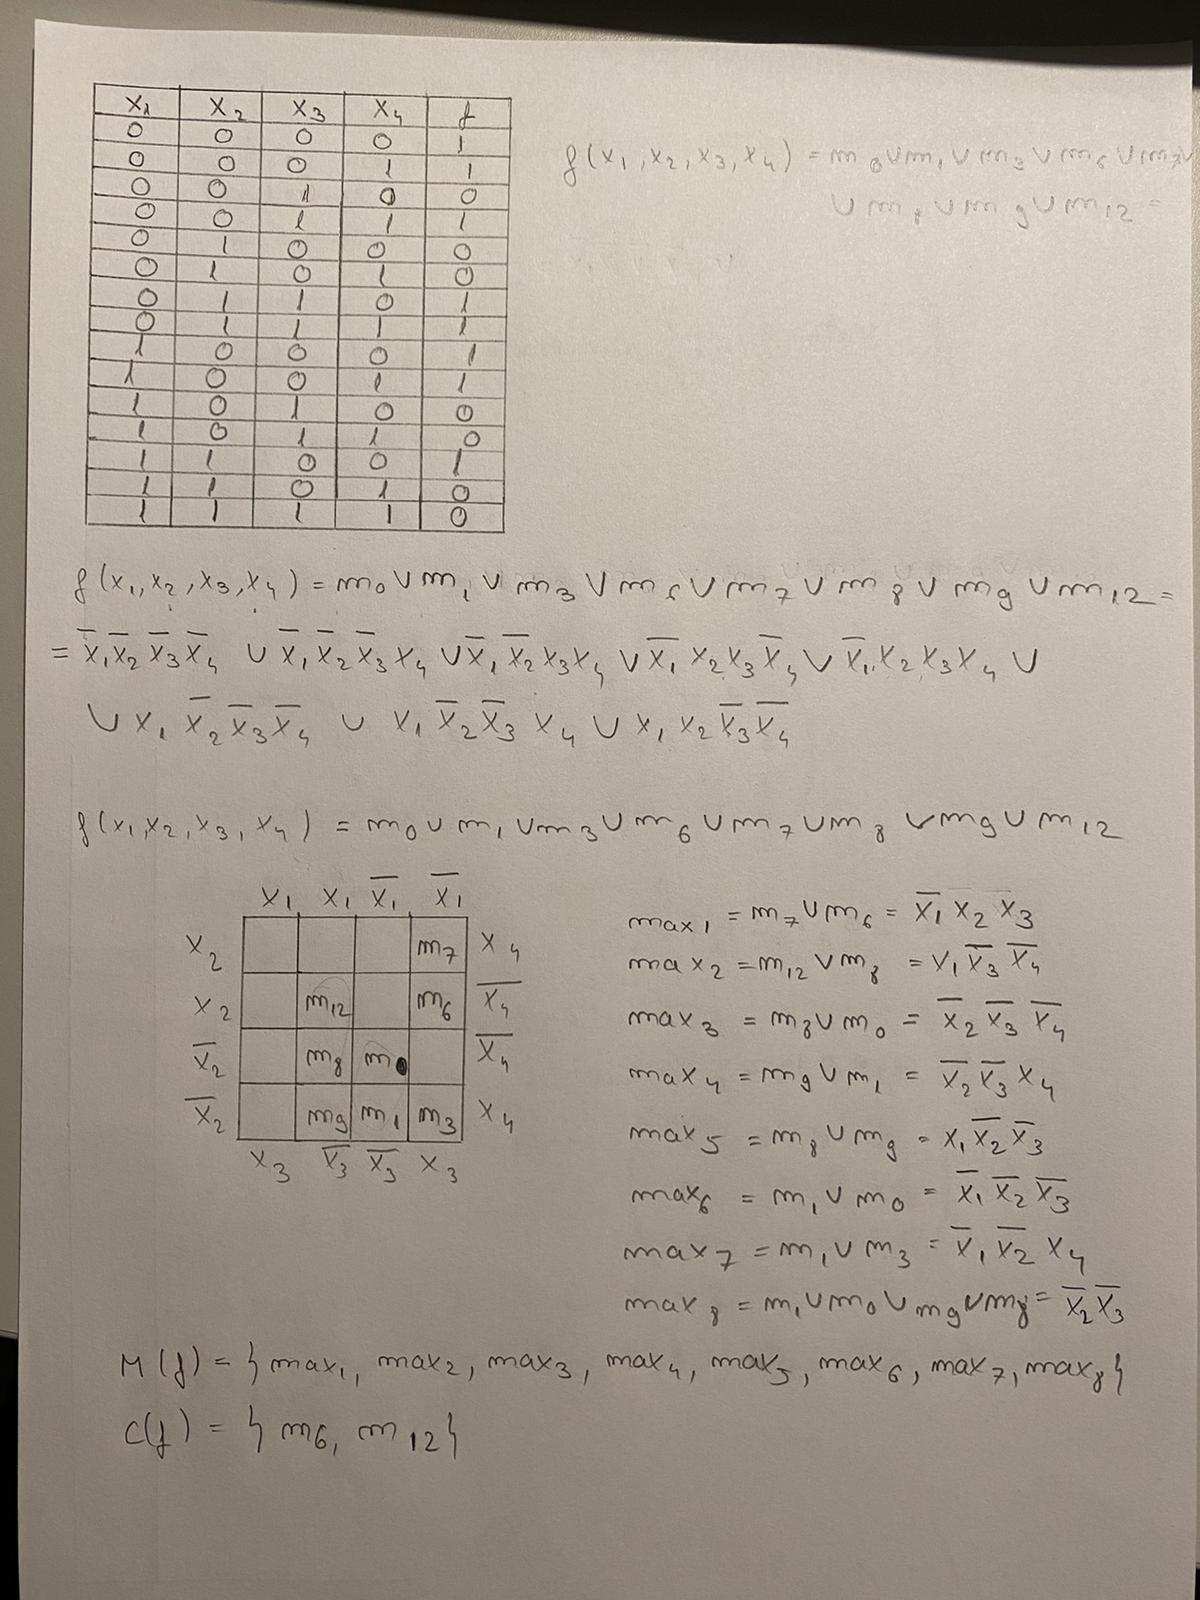 x₁ x₂ x₃ x₄ f
0 0 0 0 1
0 0 0 1 1
0 0 1 0 0
0 0 1 1 1
0 1 0 0 0
0 1 0 1 0
0 1 1 0 1
0 1 1 1 1
1 0 0 0 1
1 0 0 1 1
1 0 1 0 0
1 0 1 1 0
1 1 0 0 1
1 1 0 1 0
1 1 1 1 0
f(x₁,x₂,x₃,x₄) = m₀∨m₁∨m₃∨m₆∨m₇∨
∨m₈∨m₉∨m₁₂ =
f(x₁,x₂,x₃,x₄) = m₀∨m₁∨m₃∨m₆∨m₇∨m₈∨m₉∨m₁₂ =
= x̅₁x̅₂x̅₃x̅₄ ∨ x̅₁x̅₂x̅₃x₄ ∨ x̅₁x̅₂x₃x₄ ∨ x̅₁x₂x₃x̅₄ ∨ x̅₁x₂x₃x₄ ∨
∨ x₁x̅₂x̅₃x̅₄ ∨ x₁x̅₂x̅₃x₄ ∨ x₁x₂x̅₃x̅₄
f(x₁,x₂,x₃,x₄) = m₀∨m₁∨m₃∨m₆∨m₇∨m₈∨m₉∨m₁₂
x₁ x₁ x̅₁ x̅₁
x₂ m₇ x₄
x₂ m₁₂ m₆ x̅₄
x̅₂ m₈ m₀ x̅₄
x̅₂ m₉ m₁ m₃ x₄
x₃ x̅₃ x̅₃ x₃
max₁ = m₇∨m₆ = x̅₁x₂x₃
max₂ = m₁₂∨m₈ = x₁x̅₃x̅₄
max₃ = m₈∨m₀ = x̅₂x̅₃x̅₄
max₄ = m₉∨m₁ = x̅₂x̅₃x₄
max₅ = m₈∨m₉ = x₁x̅₂x̅₃
max₆ = m₁∨m₀ = x̅₁x̅₂x̅₃
max₇ = m₁∨m₃ = x̅₁x̅₂x₄
max₈ = m₁∨m₀∨m₉∨m₈ = x̅₂x̅₃
M(f) = {max₁, max₂, max₃, max₄, max₅, max₆, max₇, max₈}
C(f) = {m₆, m₁₂}